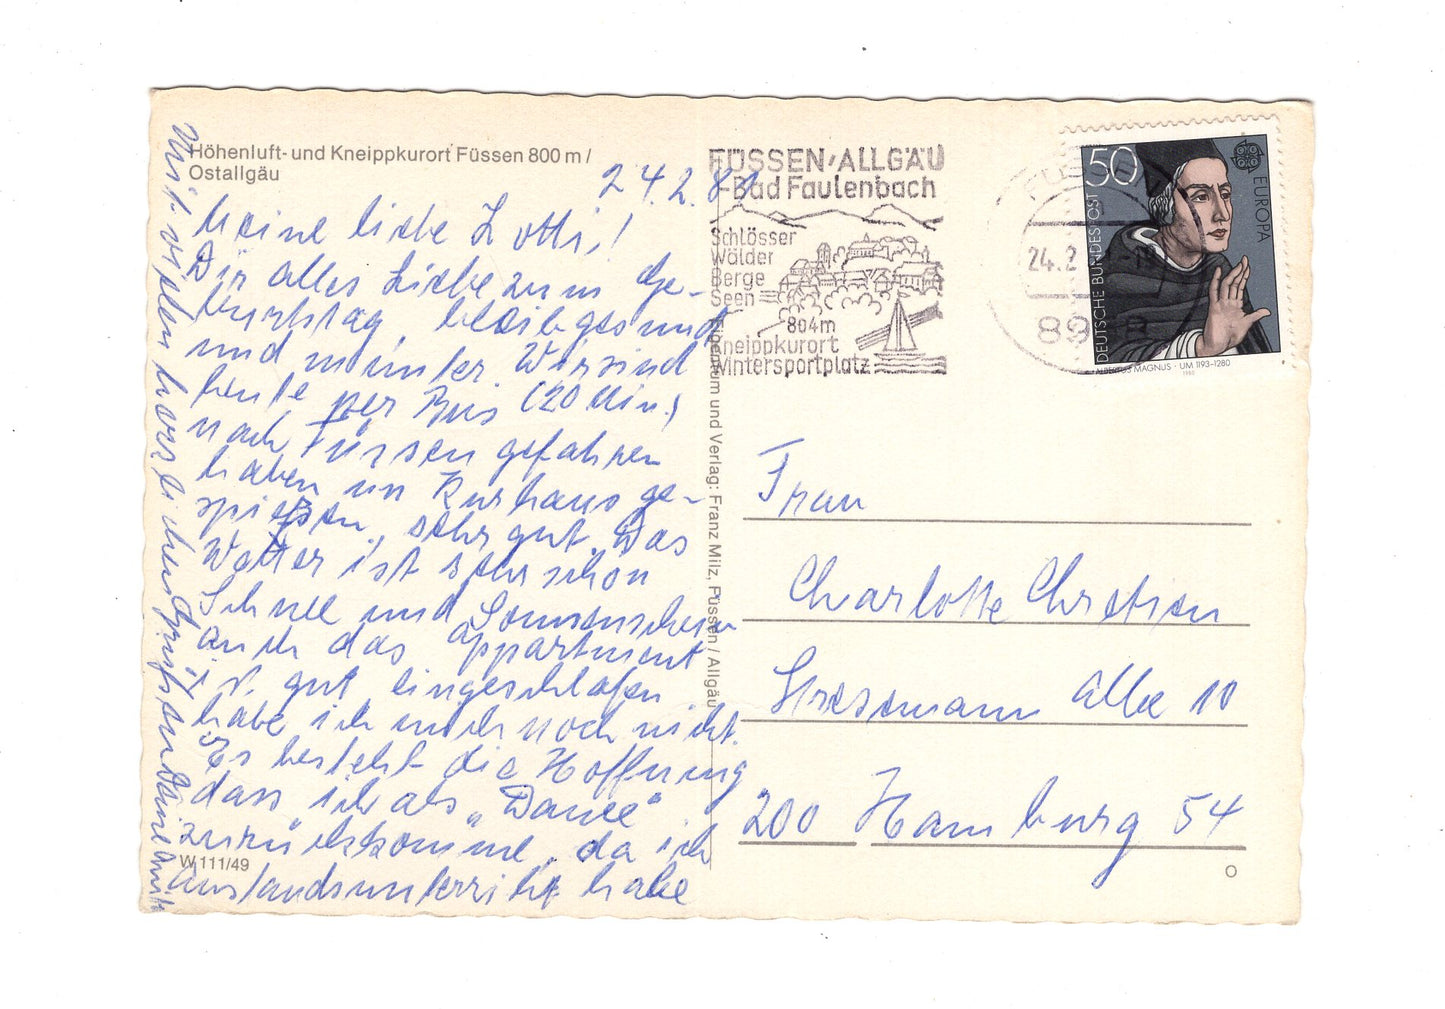 Höhenluft- und Kneippkurort Füssen 800 m /
Ostallgäu
24.2.81
Meine liebe Lotti!
Dir alles Liebe zum Ge-
burtstag bleib gesund
und munter. Wir sind
heute per Bus (20 Min.)
nach Füssen gefahren
haben im Kurhaus ge-
speisen, sehr gut. Das
Wetter ist sehr schön
Schnee und Sonnenschein
auch das Appartment
ist gut, eingeschlafen
habe ich mich noch nicht.
Es besteht die Hoffnung
dass ich als „Dame"
zurückkomme, da ich
Anstandsunterricht habe
Mit vielen herzlichen Grüßen Deine
W 111/49
FÜSSEN/ALLGÄU
-Bad Faulenbach
Schlösser
Wälder
Berge
Seen
804m
Kneippkurort
Wintersportplatz
FÜSSEN
24.2
89
50
DEUTSCHE BUNDESPOST
EUROPA
ALBERTUS MAGNUS · UM 1193–1280
1980
Eigentum und Verlag: Franz Milz, Füssen / Allgäu
Frau
Charlotte Chretien
Stresemann Allee 10
200 Hamburg 54
O